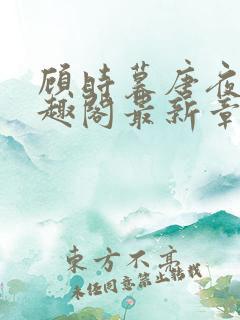 顾时幕唐夜
趣阁最新章
东方不亮
未经同意禁止转载